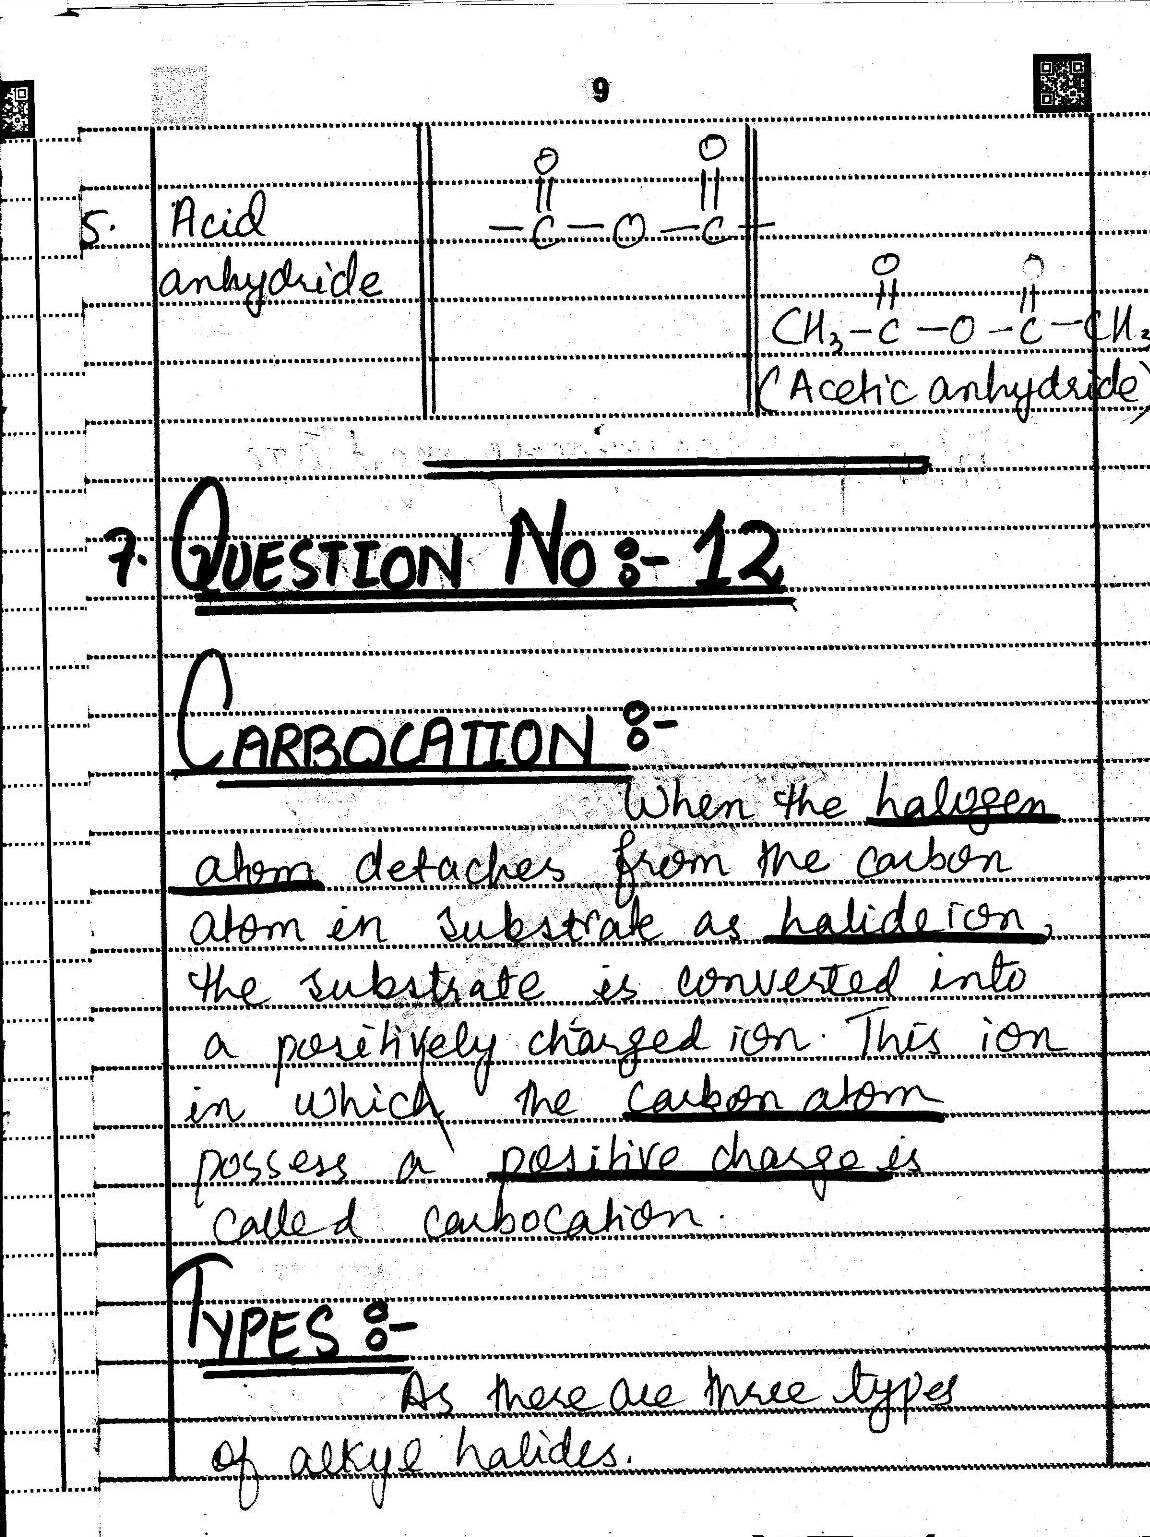 9
O O
|| ||
5. Acid -C-O-C-
anhydride
O O
|| ||
CH3-C-O-C-CH3
(Acetic anhydride)
7. QUESTION NO:- 12
CARBOCATION:-
When the halogen
atom detaches from the carbon
atom in substrate as halide ion,
the substrate is converted into
a positively charged ion. This ion
in which the carbon atom
possess a positive charge is
called carbocation.
TYPES:-
As there are three types
of alkyl halides.